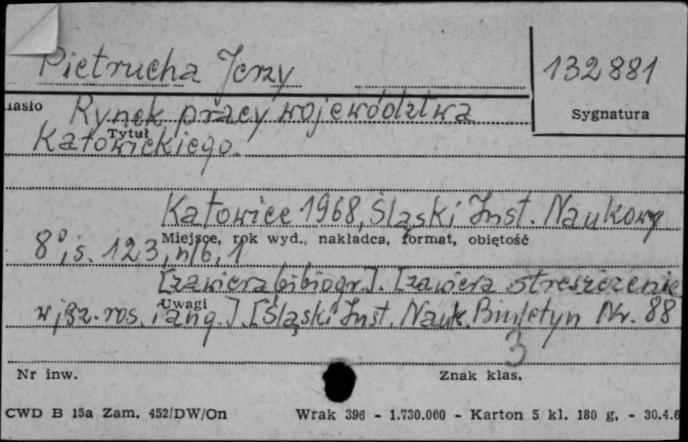 Pietrucha Jerzy
132881
Sygnatura
Rynek pracy województwa
Tytuł
Katowickiego.
Katowice 1968, Śląski Inst. Naukowy
Miejsce, rok wyd., nakładca, format, objętość
8°, s. 123, nlb, 1
[zawiera bibiogr.]. [zawiera streszczenie
Uwagi
w jęz. ros. i ang.]. [Śląski Inst. Nauk. Biuletyn Nr. 88
3
Nr inw.
Znak klas.
CWD B 15a Zam. 452/DW/On
Wrak 396 - 1.730.000 - Karton 5 kl. 180 g. - 30.4.6